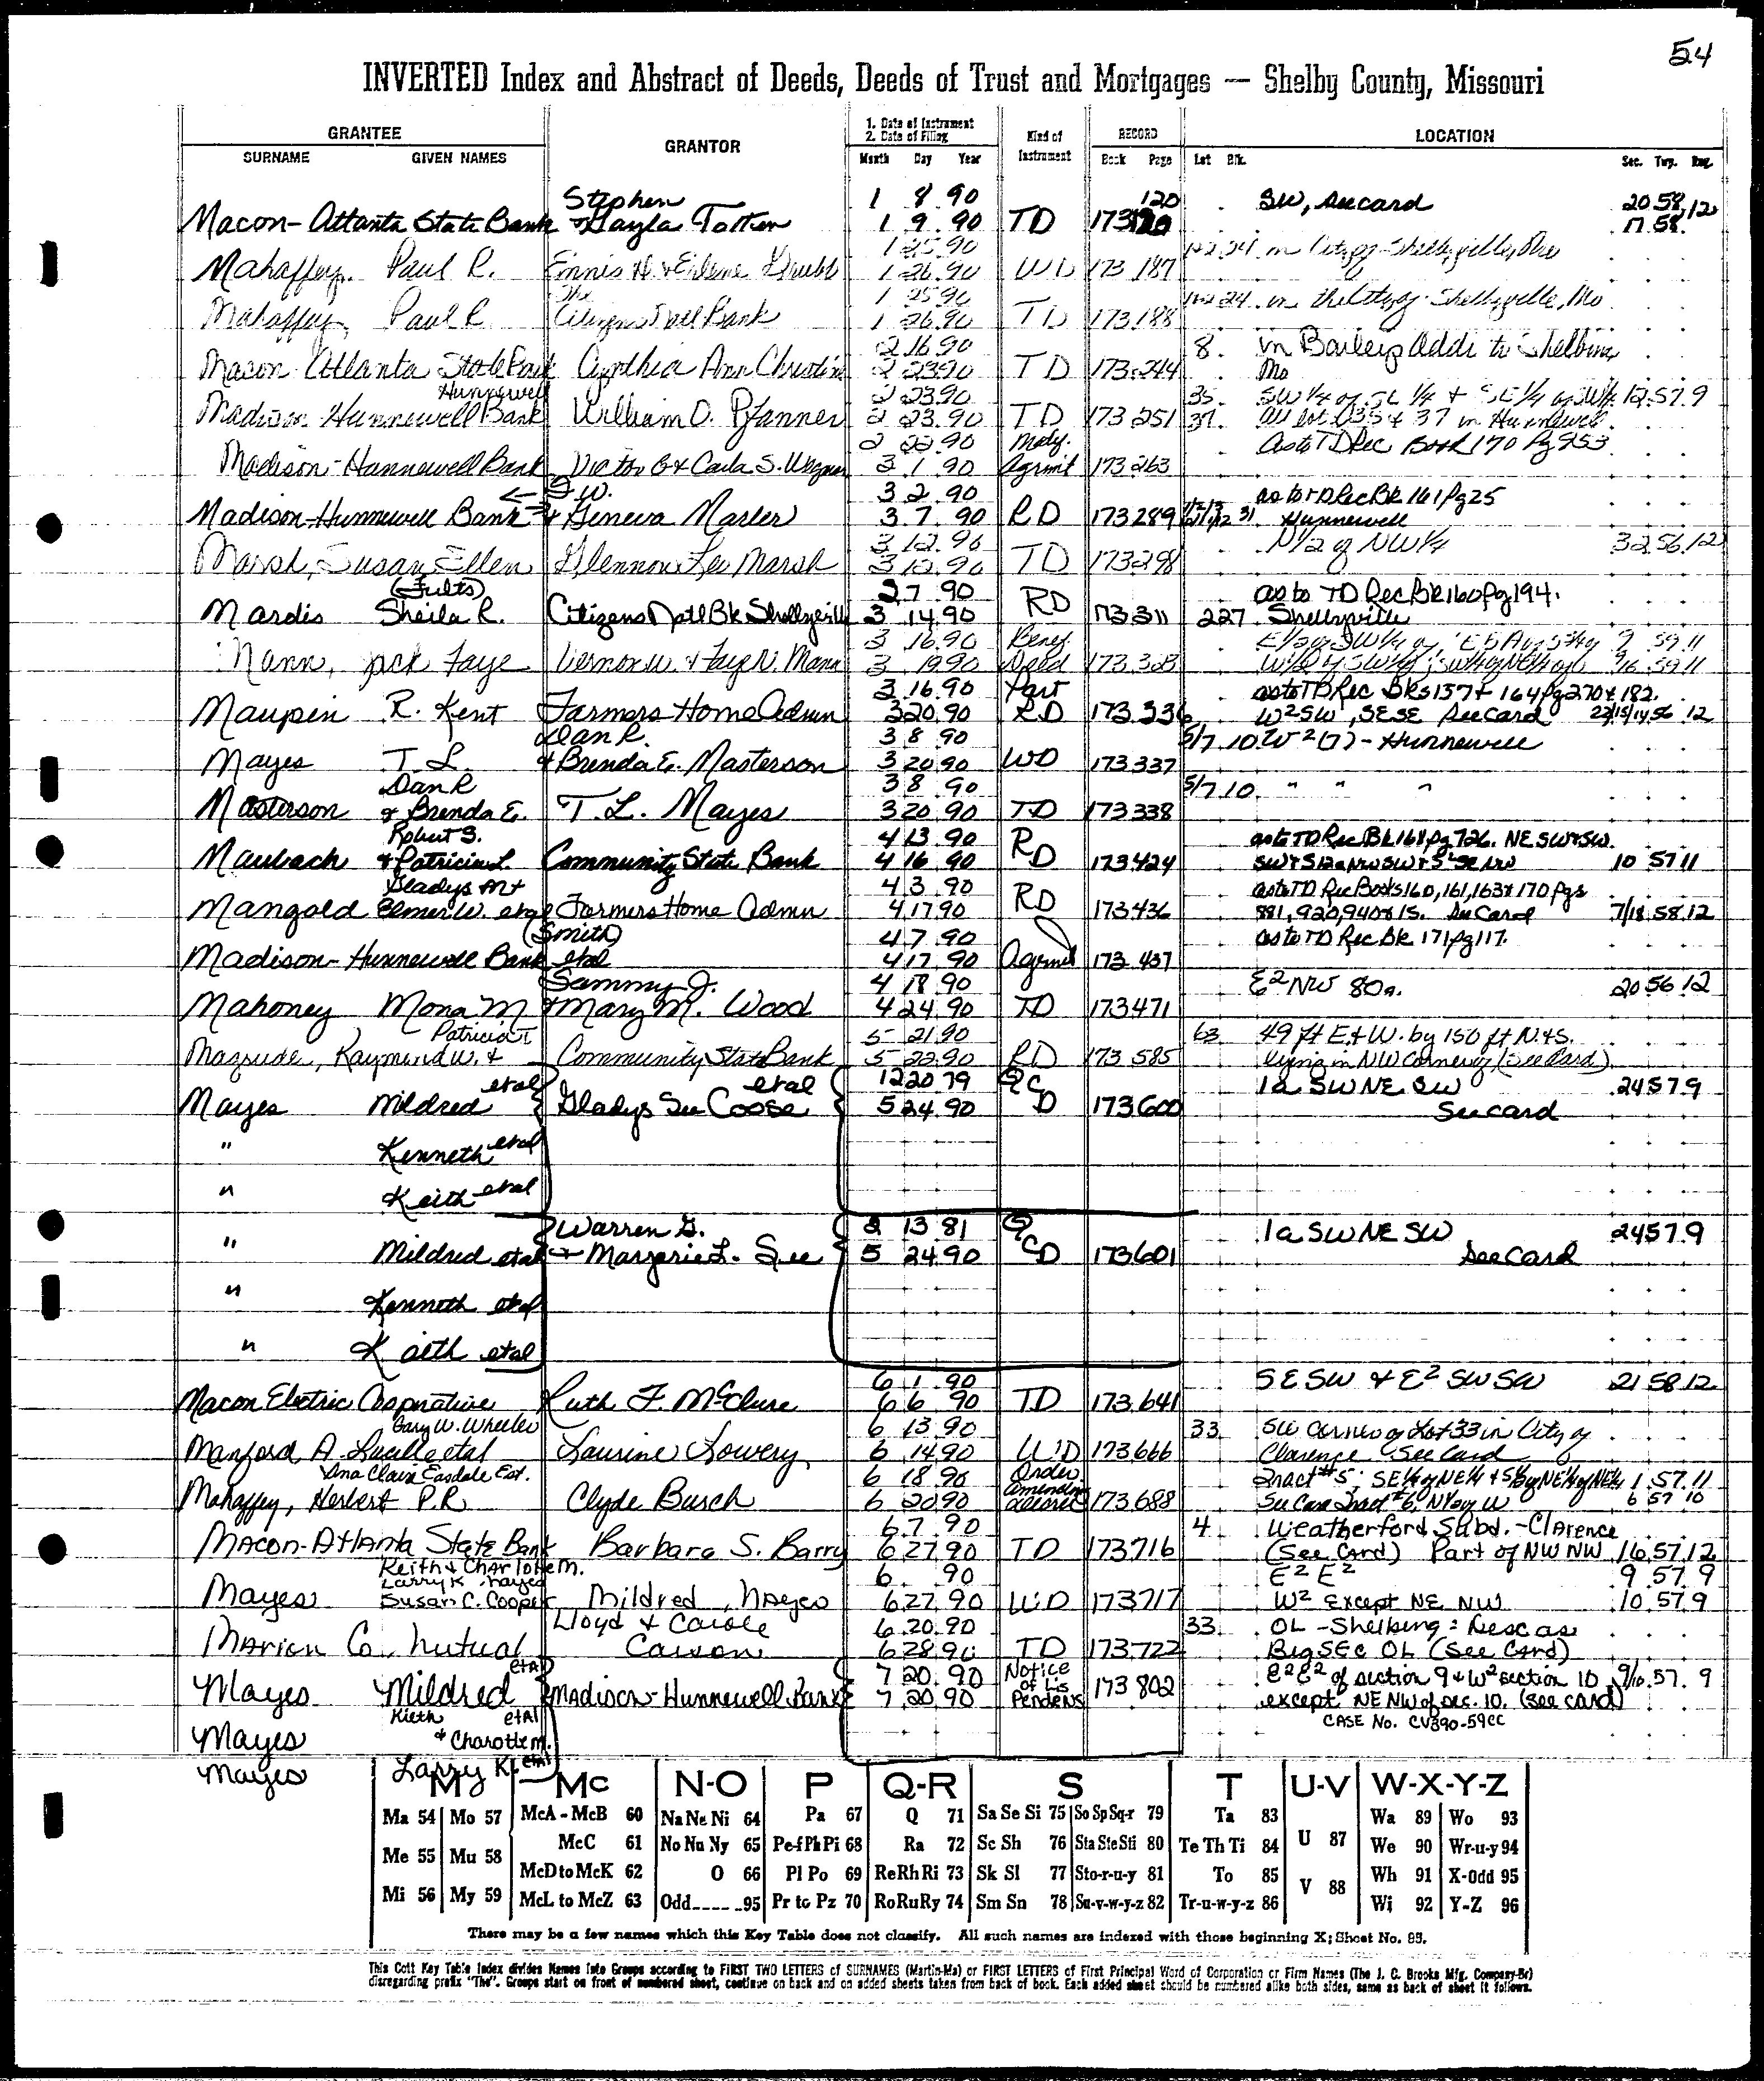 54
INVERTED Index and Abstract of Deeds, Deeds of Trust and Mortgages — Shelby County, Missouri
GRANTEE GRANTOR 1. Date of Instrument 2. Date of Filing Kind of Instrument RECORD LOCATION
SURNAME GIVEN NAMES Month Day Year Book Page Lot Blk. Sec. Twp. Rng.
Stephen 1 8 90 120 SW, see card 20 58 12
Macon-Atlanta State Bank & Gayla Totten 1 9 90 TD 173 120 17 58
1 25 90 in City of Shelbyville, Mo
Mahaffey, Paul R. Ennis H. & Erlene Grubb 1 26 90 WD 173 187
The 1 25 90 in the City of Shelbyville, Mo
Mahaffey, Paul R Citizens Natl Bank 1 26 90 TD 173 188
2 16 90 8 in Baileys Addi to Shelbina
Macon Atlanta State Bank Cynthia Ann Christine 2 23 90 TD 173 244 Mo
Hunnewell 2 23 90 35 SW 1/4 of SE 1/4 & SE 1/4 of SW 1/4 12 57 9
Madison Hunnewell Bank William D. Pfanner 2 23 90 TD 173 251 37 all lot 35 & 37 in Hunnewell
2 22 90 Mody. as to TD Rec Book 170 Pg 953
Madison-Hunnewell Bank Victor G & Carla S. Wegman 3 1 90 Agrmt 173 263
I.W. 3 2 90 as to TD Rec Bk 161 Pg 25
Madison-Hunnewell Bank & Geneva Marler 3 7 90 RD 173 289 31 Hunnewell
3 12 90 N 1/2 of NW 1/4 32 56 12
Marsh, Susan Ellen Glennon Lee Marsh 3 12 90 TD 173 298
(Fults) 2 7 90 as to TD Rec Bk 160 Pg 194.
Mardis Sheila R. Citizens Natl Bk Shelbyville 3 14 90 RD 173 311 227 Shelbyville
3 16 90 Benef 9 59 11
Mann, Jack Faye Vernon W. & Faye N. Mann 3 19 90 Deed 173 323 16 59 11
3 16 90 Part as to TD Rec Bks 157 & 164 Pg 270 & 182.
Maupin R. Kent Farmers Home Admn 3 20 90 RD 173 336 W² SW, SESE See Card 22/15/14 56 12
Dan R. 3 8 90 5/7 10 W² (7) - Hunnewell
Mayes T. L. & Brenda E. Masterson 3 20 90 WD 173 337
Dan R 3 8 90 5/7 10 " " "
Masterson & Brenda E. T. L. Mayes 3 20 90 TD 173 338
Robert S. 4 13 90 as to TD Rec Bk 164 Pg 726. NE SW & SW
Maubach & Patricia L. Community State Bank 4 16 90 RD 173 424 10 57 11
Gladys M & 4 3 90 as to TD Rec Books 160, 161, 163 & 170 Pgs
Mangold Elmer W. etal Farmers Home Admn 4 17 90 RD 173 436 881, 920, 940 & 15. See Card 7/18 58 12
(Smith) 4 7 90 as to TD Rec Bk 171 Pg 117.
Madison-Hunnewell Bank etal 4 17 90 Agrmt 173 437
Sammy J. 4 18 90 E² NW 80a. 20 56 12
Mahoney Mona M & Mary M. Wood 4 24 90 TD 173 471
Patricia T 5 21 90 63 49 ft E & W. by 150 ft N. & S.
Magrude, Raymond W. & Community State Bank 5 22 90 RD 173 585 lying in NW Corner of (See Card)
etal etal 12 20 79 1a SW NE SW 24 57 9
Mayes Mildred Gladys See Coose 5 24 90 QCD 173 600 See card
" Kenneth etal
" Keith etal
Warren G. 2 13 81 1a SW NE SW 24 57 9
" Mildred etal & Margerie L. See 5 24 90 QCD 173 601 See Card
" Kenneth etal
" Keith etal
6 1 90 SE SW & E² SW SW 21 58 12
Macon Electric Cooperative Ruth F. McClure 6 6 90 TD 173 641
Gary W. Wheeler 6 13 90 33 SW Corner of Lot 33 in City of
Manford, A. Lucille etal Laurine Lowery 6 14 90 WD 173 666 Clarence See Card
Ana Claire Easdale Est. 6 18 90 Order Tract #5: SE 1/4 of NE 1/4 & S 1/2 of NE 1/4 of NE 1/4 1 57 11
Mahaffey, Herbert P.R Clyde Burch 6 20 90 173 688 See Card Tract #6 6 57 10
6 7 90 4 Weatherford Subd. - Clarence
Macon-Atlanta State Bank Barbara S. Barry 6 27 90 TD 173 716 (See Card) Part of NW NW 16 57 12
Keith & Charlotte M.
Larry K. Mayes 6 90 E² E² 9 57 9
Mayes Susan C. Cooper Mildred Mayes 6 27 90 WD 173 717 W² Except NE NW 10 57 9
Lloyd & Carole 6 20 90 33 OL - Shelbina: Desc as
Marion Co. Mutual Carson 6 28 90 TD 173 722 Beg SEC OL (See Card)
etal 7 20 90 Notice of Lis Pendens E² E² of section 9 & W² section 10 9/10 57 9
Mayes Mildred Madison-Hunnewell Bank 7 20 90 173 802 except NE NW of Sec. 10. (see card)
Kieth etal CASE No. CV890-59CC
Mayes & Charotte M.
Mayes Larry K. etal
M Mc N-O P Q-R S T U-V W-X-Y-Z
Ma 54 Mo 57 McA - McB 60 Na Ne Ni 64 Pa 67 Q 71 Sa Se Si 75 So Sp Sq-r 79 Ta 83 U 87 Wa 89 Wo 93
Me 55 Mu 58 McC 61 No Nu Ny 65 Pe-f Ph Pi 68 Ra 72 Sc Sh 76 Sta Ste Sti 80 Te Th Ti 84 We 90 Wr-u-y 94
McD to McK 62 O 66 Pl Po 69 Re Rh Ri 73 Sk Sl 77 Sto-r-u-y 81 To 85 V 88 Wh 91 X-Odd 95
Mi 56 My 59 McL to McZ 63 Odd 95 Pr to Pz 70 Ro Ru Ry 74 Sm Sn 78 Su-v-w-y-z 82 Tr-u-w-y-z 86 Wi 92 Y-Z 96
There may be a few names which this Key Table does not classify. All such names are indexed with those beginning X; Sheet No. 95.
This Cott Key Table Index divides Names into Groups according to FIRST TWO LETTERS of SURNAMES (Martin-Ma) or FIRST LETTERS of First Principal Word of Corporation or Firm Names (The J. C. Brooks Mfg. Company-Br)
disregarding prefix "The". Groups start on front of numbered sheet, continue on back and on added sheets taken from back of book. Each added sheet should be numbered alike both sides, same as back of sheet it follows.